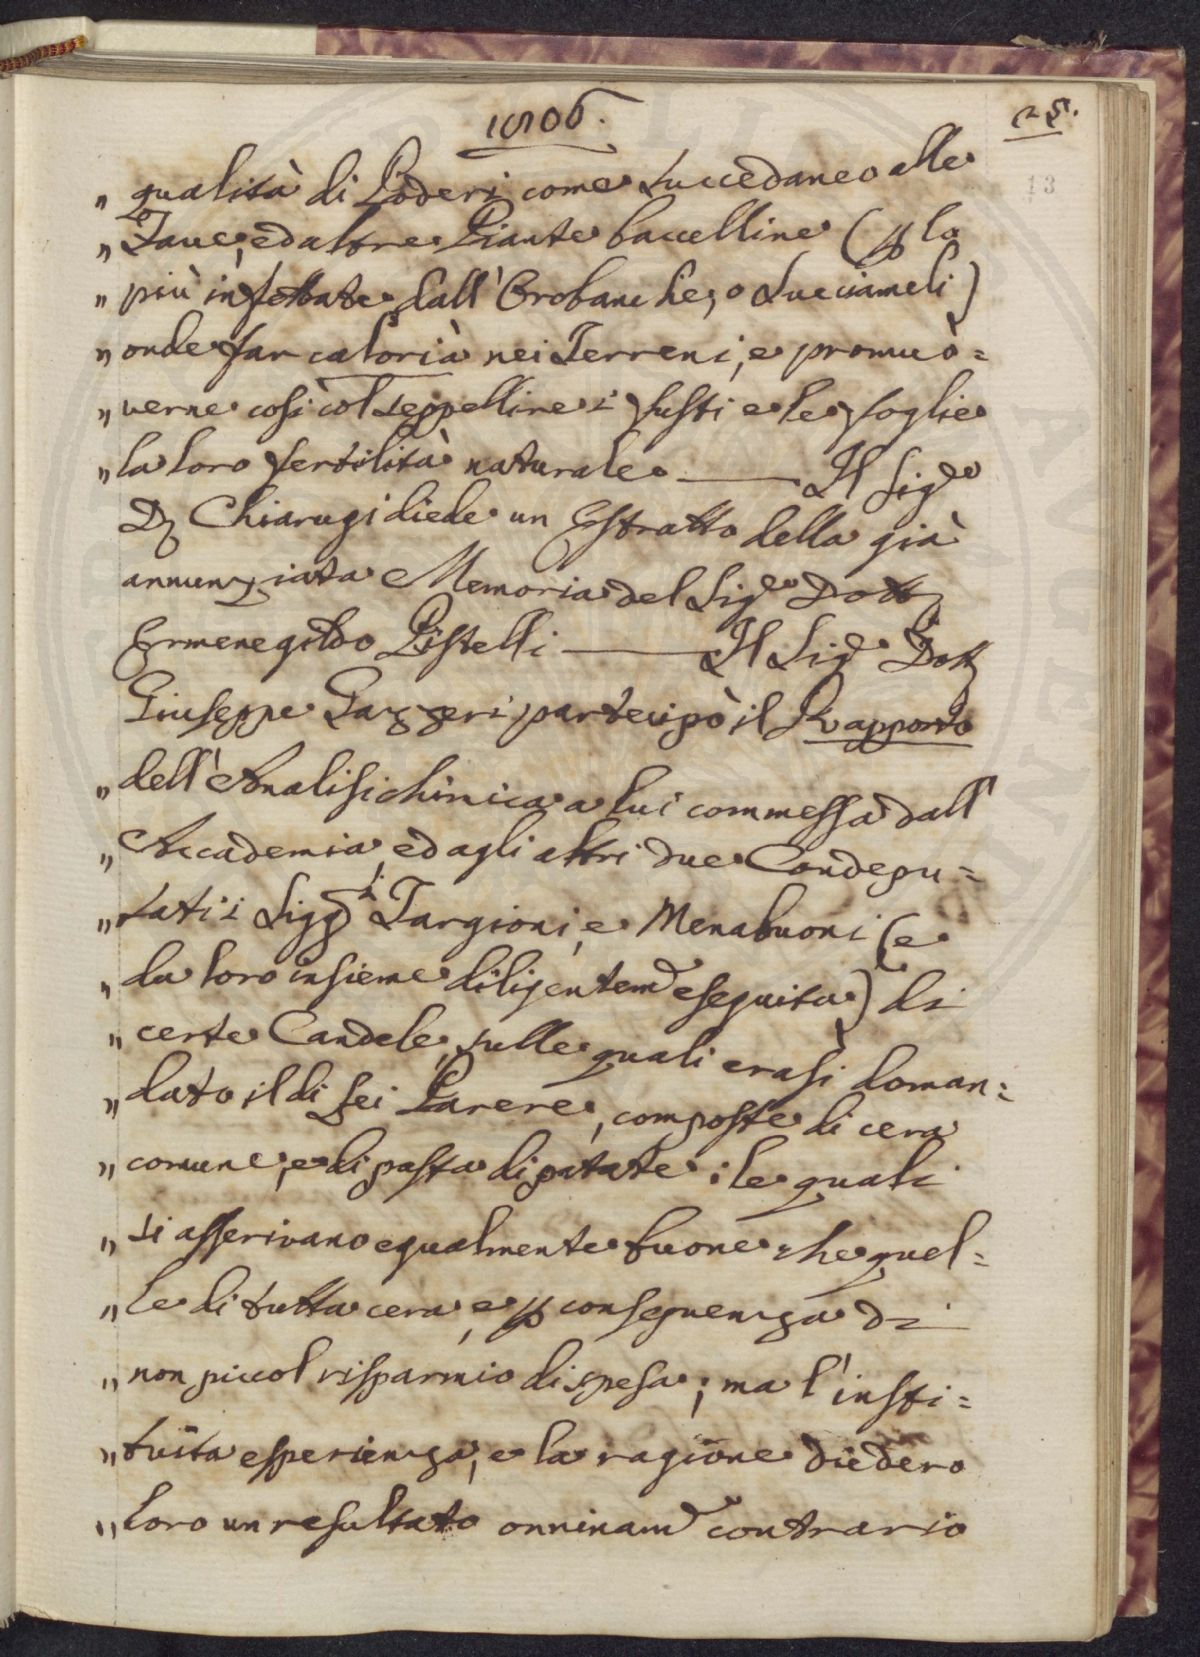 1806.
25.
13
„ qualità di Poderi come succedaneo alle
„ Fave, ed altre Piante baccelline (p lo
„ più infestate dall'Orobanche, o Succiameli)
„ onde far caloria nei Terreni, e promuò=
„ verne così còl seppellire i fusti e le foglie
„ la loro fertilità naturale. —— Il Sig.e
D Chiarugi diede un Estratto della già
annunziata Memoria del Sig.e Dott
Ermenegildo Pistelli —— Il Sig.e Dott
Giuseppe Gazzeri partecipò il Rapporto
„ dell'Analisi chimica a lui commessa dall'
„ Accademia, ed agli altri due Condepu=
„ tati i Sigg.i Targioni, e Menabuoni (e
„ da loro insieme diligentem.e eseguita) di
„ certe Candele, sulle quali erasi doman=
„ dato il di Lei Parere, composte di cera
„ comune, e di pasta di patate: le quali
„ si asserivano egualmente buone che quel=
„ le di tutta cera, e p conseguenza di
„ non piccol risparmio di spesa; ma l'insti=
„ tuita esperienza, e la ragione diedero
„ loro un resultato onninam.e contrario